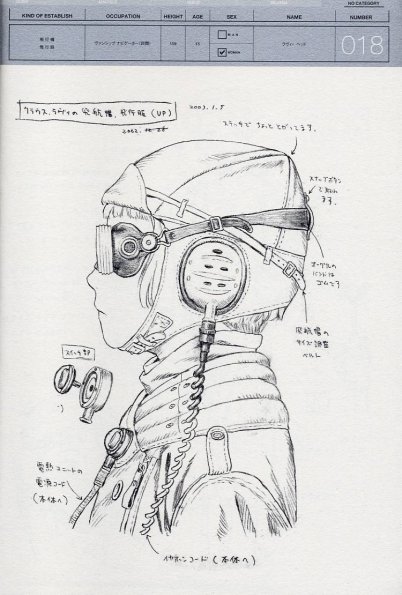 NO CATEGORY
KIND OF ESTABLISH
OCCUPATION
HEIGHT
AGE
SEX
NAME
NUMBER
飛行帽
飛行服
ヴァンシップ ナビゲーター（訓練）
15
MAN
WOMAN
ラヴィ ヘッド
018
クラウス、ラヴィの飛航帽、飛行服（UP）
2003.1.5
2002.
ステッチで ちょっと とがってます。
スナップボタン
で
ます。
ゴーグルの
バンドは
ゴムです
飛航帽の
サイズ調整
ベルト
スイッチ部
電熱ユニットの
電源コード
（本体へ）
イヤフォンコード（本体へ）